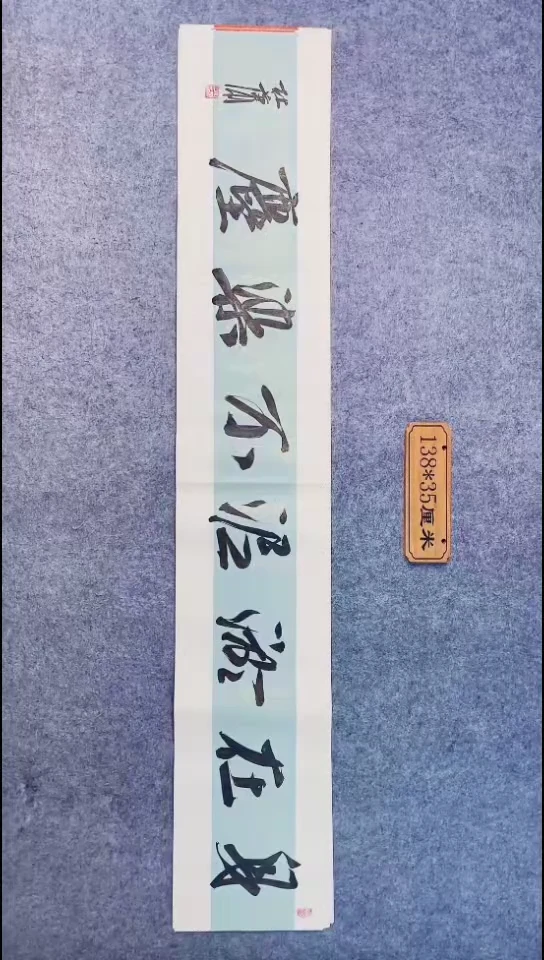 身在淤泥不染塵
138*35厘米